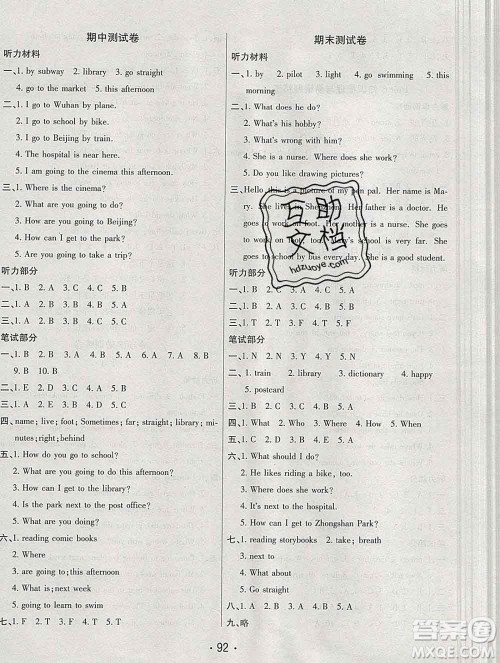 期中测试卷
听力材料
一、1. by subway  2. library  3. go straight
4. go to the market  5. this afternoon
二、1. I go to Wuhan by plane.
2. I go to school by bike.
3. I go to Beijing by train.
4. The hospital is near here.
5. I am going to the cinema this afternoon.
三、1. Where is the cinema?
2. What are you going to do?
3. How are you going to Beijing?
4. What are you going to buy?
5. How can I get to the hospital?
听力部分
一、1. B  2. A  3. C  4. C  5. A
二、1. D  2. E  3. B  4. C  5. A
三、1. A  2. B  3. C  4. B  5. A
笔试部分
一、1. B  2. C  3. A  4. A  5. B  6. A  7. B  8. B
9. B  10. B
二、1. D  2. E  3. A  4. C  5. B
三、1. A  2. B  3. B  4. C  5. C
四、name; live; foot; Sometimes; far; straight; library; mi-
nutes;right;behind
五、1. How do you go to school?
2. What are you going to do this afternoon?
3. How can I get to the library?
4. Is the park next to the post office?
5. What are you doing?
六、1. reading comic books
2. Where
3. are going to;this afternoon
4. What is;next week
5. going to learn to swim
七、1. F  2. F  3. F  4. F  5. T
期末测试卷
听力材料
一、1. by  2. pilot  3. light  4. go swimming  5. this
morning
二、1. What does he do?
2. What's his hobby?
3. What's wrong with him?
4. She is a nurse. Where does she work?
5. Do you like drawing pictures?
三、Hello, this is a picture of my pen pal. Her name is Ma-
ry. She lives in Shenzhen. Her father is a doctor. He
goes to work on foot. Her mother is a nurse. She
goes to work on foot, too. Mary's school is very far. She
goes to school by bus every day. She goes home by
bus, too.
听力部分
一、1. B  2. A  3. C  4. A  5. C
二、1. C  2. A  3. E  4. D  5. B
三、1. T  2. F  3. T  4. T  5. F
笔试部分
一、1. Y  2. N  3. Y  4. Y  5. N
二、1. train  2. library  3. dictionary  4. happy
5. postcard
三、1. B  2. C  3. A  4. B  5. C
四、1. What  2. Where  3. How  4. How  5. When
五、1. D  2. E  3. A  4. C  5. B
六、1. What should I do?
2. He likes riding a bike, too.
3. Where does he work?
4. What are your hobbies?
5. How can I get to Zhongshan Park?
七、1. reading storybooks  2. take;have
3. next to
4. What is
5. What's;going to
八、1. A  2. A  3. C  4. B  5. C
九、略
· 92 ·
互助
文档
hdzuoye.com
答案圈
MXQE.COM